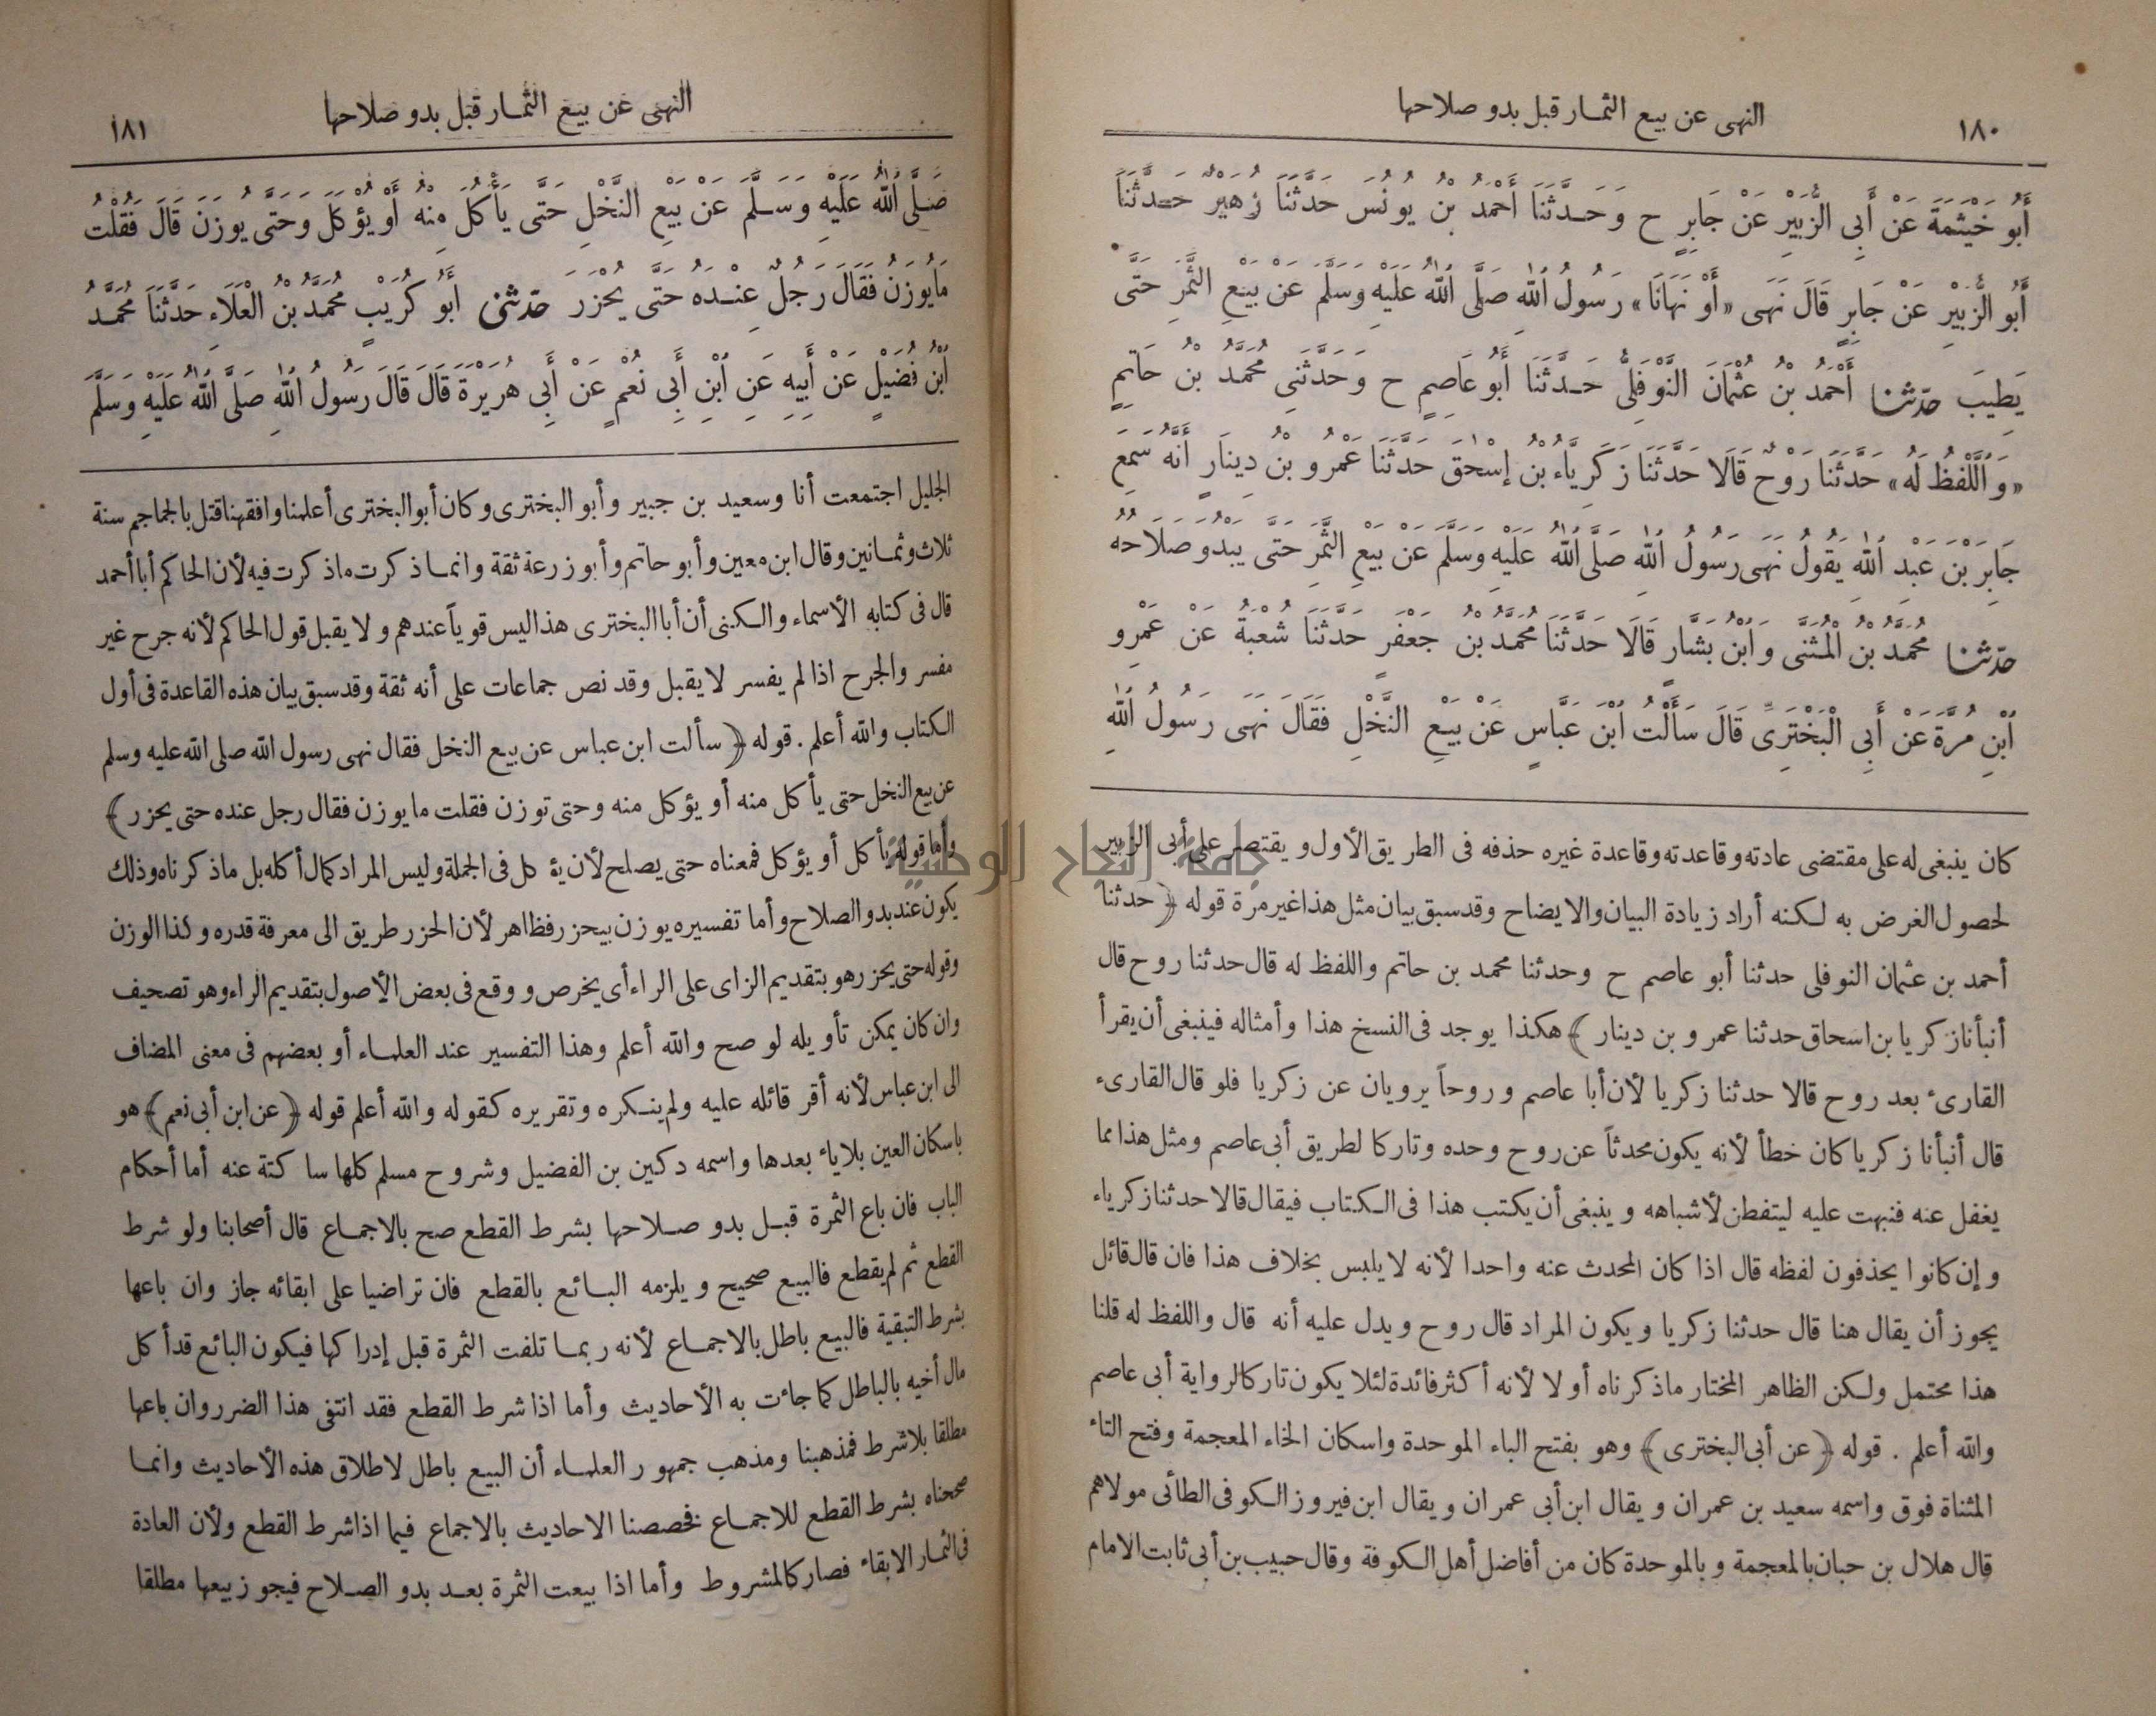 ١٨٠
النهى عن بيع الثمار قبل بدو صلاحها
أَبُو خَيْثَمَةَ عَنْ أَبِى الزُّبَيْرِ عَنْ جَابِرٍ ح وَحَدَّثَنَا أَحْمَدُ بْنُ يُونُسَ حَدَّثَنَا زُهَيْرٌ حَدَّثَنَا
أَبُو الزُّبَيْرِ عَنْ جَابِرٍ قَالَ نَهَى «أَوْ نَهَانَا» رَسُولُ اللهِ صَلَّى اللهُ عَلَيْهِ وَسَلَّمَ عَنْ بَيْعِ الثَّمَرِ حَتَّى
يَطِيبَ حدّثنا أَحْمَدُ بْنُ عُثْمَانَ النَّوْفَلِىُّ حَدَّثَنَا أَبُو عَاصِمٍ ح وَحَدَّثَنِى مُحَمَّدُ بْنُ حَاتِمٍ
«وَاللَّفْظُ لَهُ» حَدَّثَنَا رَوْحٌ قَالَا حَدَّثَنَا زَكَرِيَّاءُ بْنُ إِسْحٰقَ حَدَّثَنَا عَمْرُو بْنُ دِينَارٍ أَنَّهُ سَمِعَ
جَابِرَ بْنَ عَبْدِ اللهِ يَقُولُ نَهَى رَسُولُ اللهِ صَلَّى اللهُ عَلَيْهِ وَسَلَّمَ عَنْ بَيْعِ الثَّمَرِ حَتَّى يَبْدُوَ صَلَاحُهُ
حدّثنا مُحَمَّدُ بْنُ الْمُثَنَّى وَابْنُ بَشَّارٍ قَالَا حَدَّثَنَا مُحَمَّدُ بْنُ جَعْفَرٍ حَدَّثَنَا شُعْبَةُ عَنْ عَمْرِو
ابْنِ مُرَّةَ عَنْ أَبِى الْبَخْتَرِىِّ قَالَ سَأَلْتُ ابْنَ عَبَّاسٍ عَنْ بَيْعِ النَّخْلِ فَقَالَ نَهَى رَسُولُ اللهِ
كان ينبغى له على مقتضى عادته وقاعدته وقاعدة غيره حذفه فى الطريق الأول و يقتصر على أبى الزبير
لحصول الغرض به لكنه أراد زيادة البيان والايضاح وقد سبق بيان مثل هذا غير مرة قوله ﴿ حدثنا
أحمد بن عثمان النوفلى حدثنا أبو عاصم ح وحدثنا محمد بن حاتم واللفظ له قال حدثنا روح قال
أنبأنا زكريا بن اسحاق حدثنا عمرو بن دينار ﴾ هكذا يوجد فى النسخ هذا وأمثاله فينبغى أن يقرأ
القارىء بعد روح قالا حدثنا زكريا لأن أبا عاصم وروحاً يرويان عن زكريا فلو قال القارىء
قال أنبأنا زكريا كان خطأ لأنه يكون محدثاً عن روح وحده وتاركا لطريق أبى عاصم ومثل هذا مما
يغفل عنه فنبهت عليه ليتفطن لأشباهه و ينبغى أن يكتب هذا فى الكتاب فيقال قالا حدثنا زكرياء
و إن كانوا يحذفون لفظه قال اذا كان المحدث عنه واحدا لأنه لا يلبس بخلاف هذا فان قال قائل
يجوز أن يقال هنا قال حدثنا زكريا ويكون المراد قال روح ويدل عليه أنه قال واللفظ له قلنا
هذا محتمل ولكن الظاهر المختار ماذكرناه أولا لأنه أكثر فائدة لئلا يكون تاركا لرواية أبى عاصم
والله أعلم . قوله ﴿ عن أبى البخترى ﴾ وهو بفتح الباء الموحدة واسكان الخاء المعجمة وفتح التاء
المثناة فوق واسمه سعيد بن عمران ويقال ابن أبى عمران ويقال ابن فيروز الكوفى الطائى مولاهم
قال هلال بن حبان بالمعجمة وبالموحدة كان من أفاضل أهل الكوفة وقال حبيب بن أبى ثابت الامام
النهى عن بيع الثمار قبل بدو صلاحها
١٨١
صَلَّى اللهُ عَلَيْهِ وَسَلَّمَ عَنْ بَيْعِ النَّخْلِ حَتَّى يَأْكُلَ مِنْهُ أَوْ يُؤْكَلَ وَحَتَّى يُوزَنَ قَالَ فَقُلْتُ
مَايُوزَنُ فَقَالَ رَجُلٌ عِنْدَهُ حَتَّى يُحْزَرَ حدّثنى أَبُو كُرَيْبٍ مُحَمَّدُ بْنُ الْعَلَاءِ حَدَّثَنَا مُحَمَّدُ
ابْنُ فُضَيْلٍ عَنْ أَبِيهِ عَنِ ابْنِ أَبِى نُعْمٍ عَنْ أَبِى هُرَيْرَةَ قَالَ قَالَ رَسُولُ اللهِ صَلَّى اللهُ عَلَيْهِ وَسَلَّمَ
الجليل اجتمعت أنا وسعيد بن جبير وأبو البخترى وكان أبو البخترى أعلمنا وافقهنا قتل بالجماجم سنة
ثلاث وثمانين وقال ابن معين وأبو حاتم وأبو زرعة ثقة وانما ذكرت ماذكرت فيه لأن الحاكم أبا أحمد
قال فى كتابه الأسماء والكنى أن أبا البخترى هذا ليس قوياً عندهم ولا يقبل قول الحاكم لأنه جرح غير
مفسر والجرح اذا لم يفسر لا يقبل وقد نص جماعات على أنه ثقة وقد سبق بيان هذه القاعدة فى أول
الكتاب والله أعلم . قوله ﴿ سألت ابن عباس عن بيع النخل فقال نهى رسول الله صلى الله عليه وسلم
عن بيع النخل حتى يأكل منه أو يؤكل منه وحتى توزن فقلت ما يوزن فقال رجل عنده حتى يحزر ﴾
وأما قوله يأكل أو يؤكل فمعناه حتى يصلح لأن يؤكل فى الجملة وليس المراد كمال أكله بل ماذكرناه وذلك
يكون عند بدو الصلاح وأما تفسيره يوزن بيحزر فظاهر لأن الحزر طريق الى معرفة قدره وكذا الوزن
وقوله حتى يحزر هو بتقديم الزاى على الراء أى يخرص ووقع فى بعض الأصول بتقديم الراء وهو تصحيف
وان كان يمكن تأويله لو صح والله أعلم وهذا التفسير عند العلماء أو بعضهم فى معنى المضاف
الى ابن عباس لأنه أقر قائله عليه ولم ينكره وتقريره كقوله والله أعلم قوله ﴿ عن ابن أبى نعم ﴾ هو
باسكان العين بلا ياء بعدها واسمه دكين بن الفضيل وشروح مسلم كلها ساكتة عنه أما أحكام
الباب فان باع الثمرة قبل بدو صلاحها بشرط القطع صح بالاجماع قال أصحابنا ولو شرط
القطع ثم لم يقطع فالبيع صحيح ويلزمه البائع بالقطع فان تراضيا على ابقائه جاز وان باعها
بشرط التبقية فالبيع باطل بالاجماع لأنه ربما تلفت الثمرة قبل إدراكها فيكون البائع قد أكل
مال أخيه بالباطل كما جاءت به الأحاديث وأما اذا شرط القطع فقد انتفى هذا الضرر وان باعها
مطلقا بلا شرط فمذهبنا ومذهب جمهور العلماء أن البيع باطل لاطلاق هذه الأحاديث وانما
صححناه بشرط القطع للاجماع فخصصنا الاحاديث بالاجماع فيما اذا شرط القطع ولأن العادة
فى الثمار الابقاء فصار كالمشروط وأما اذا بيعت الثمرة بعد بدو الصلاح فيجوز بيعها مطلقا
جامعة النجاح الوطنية